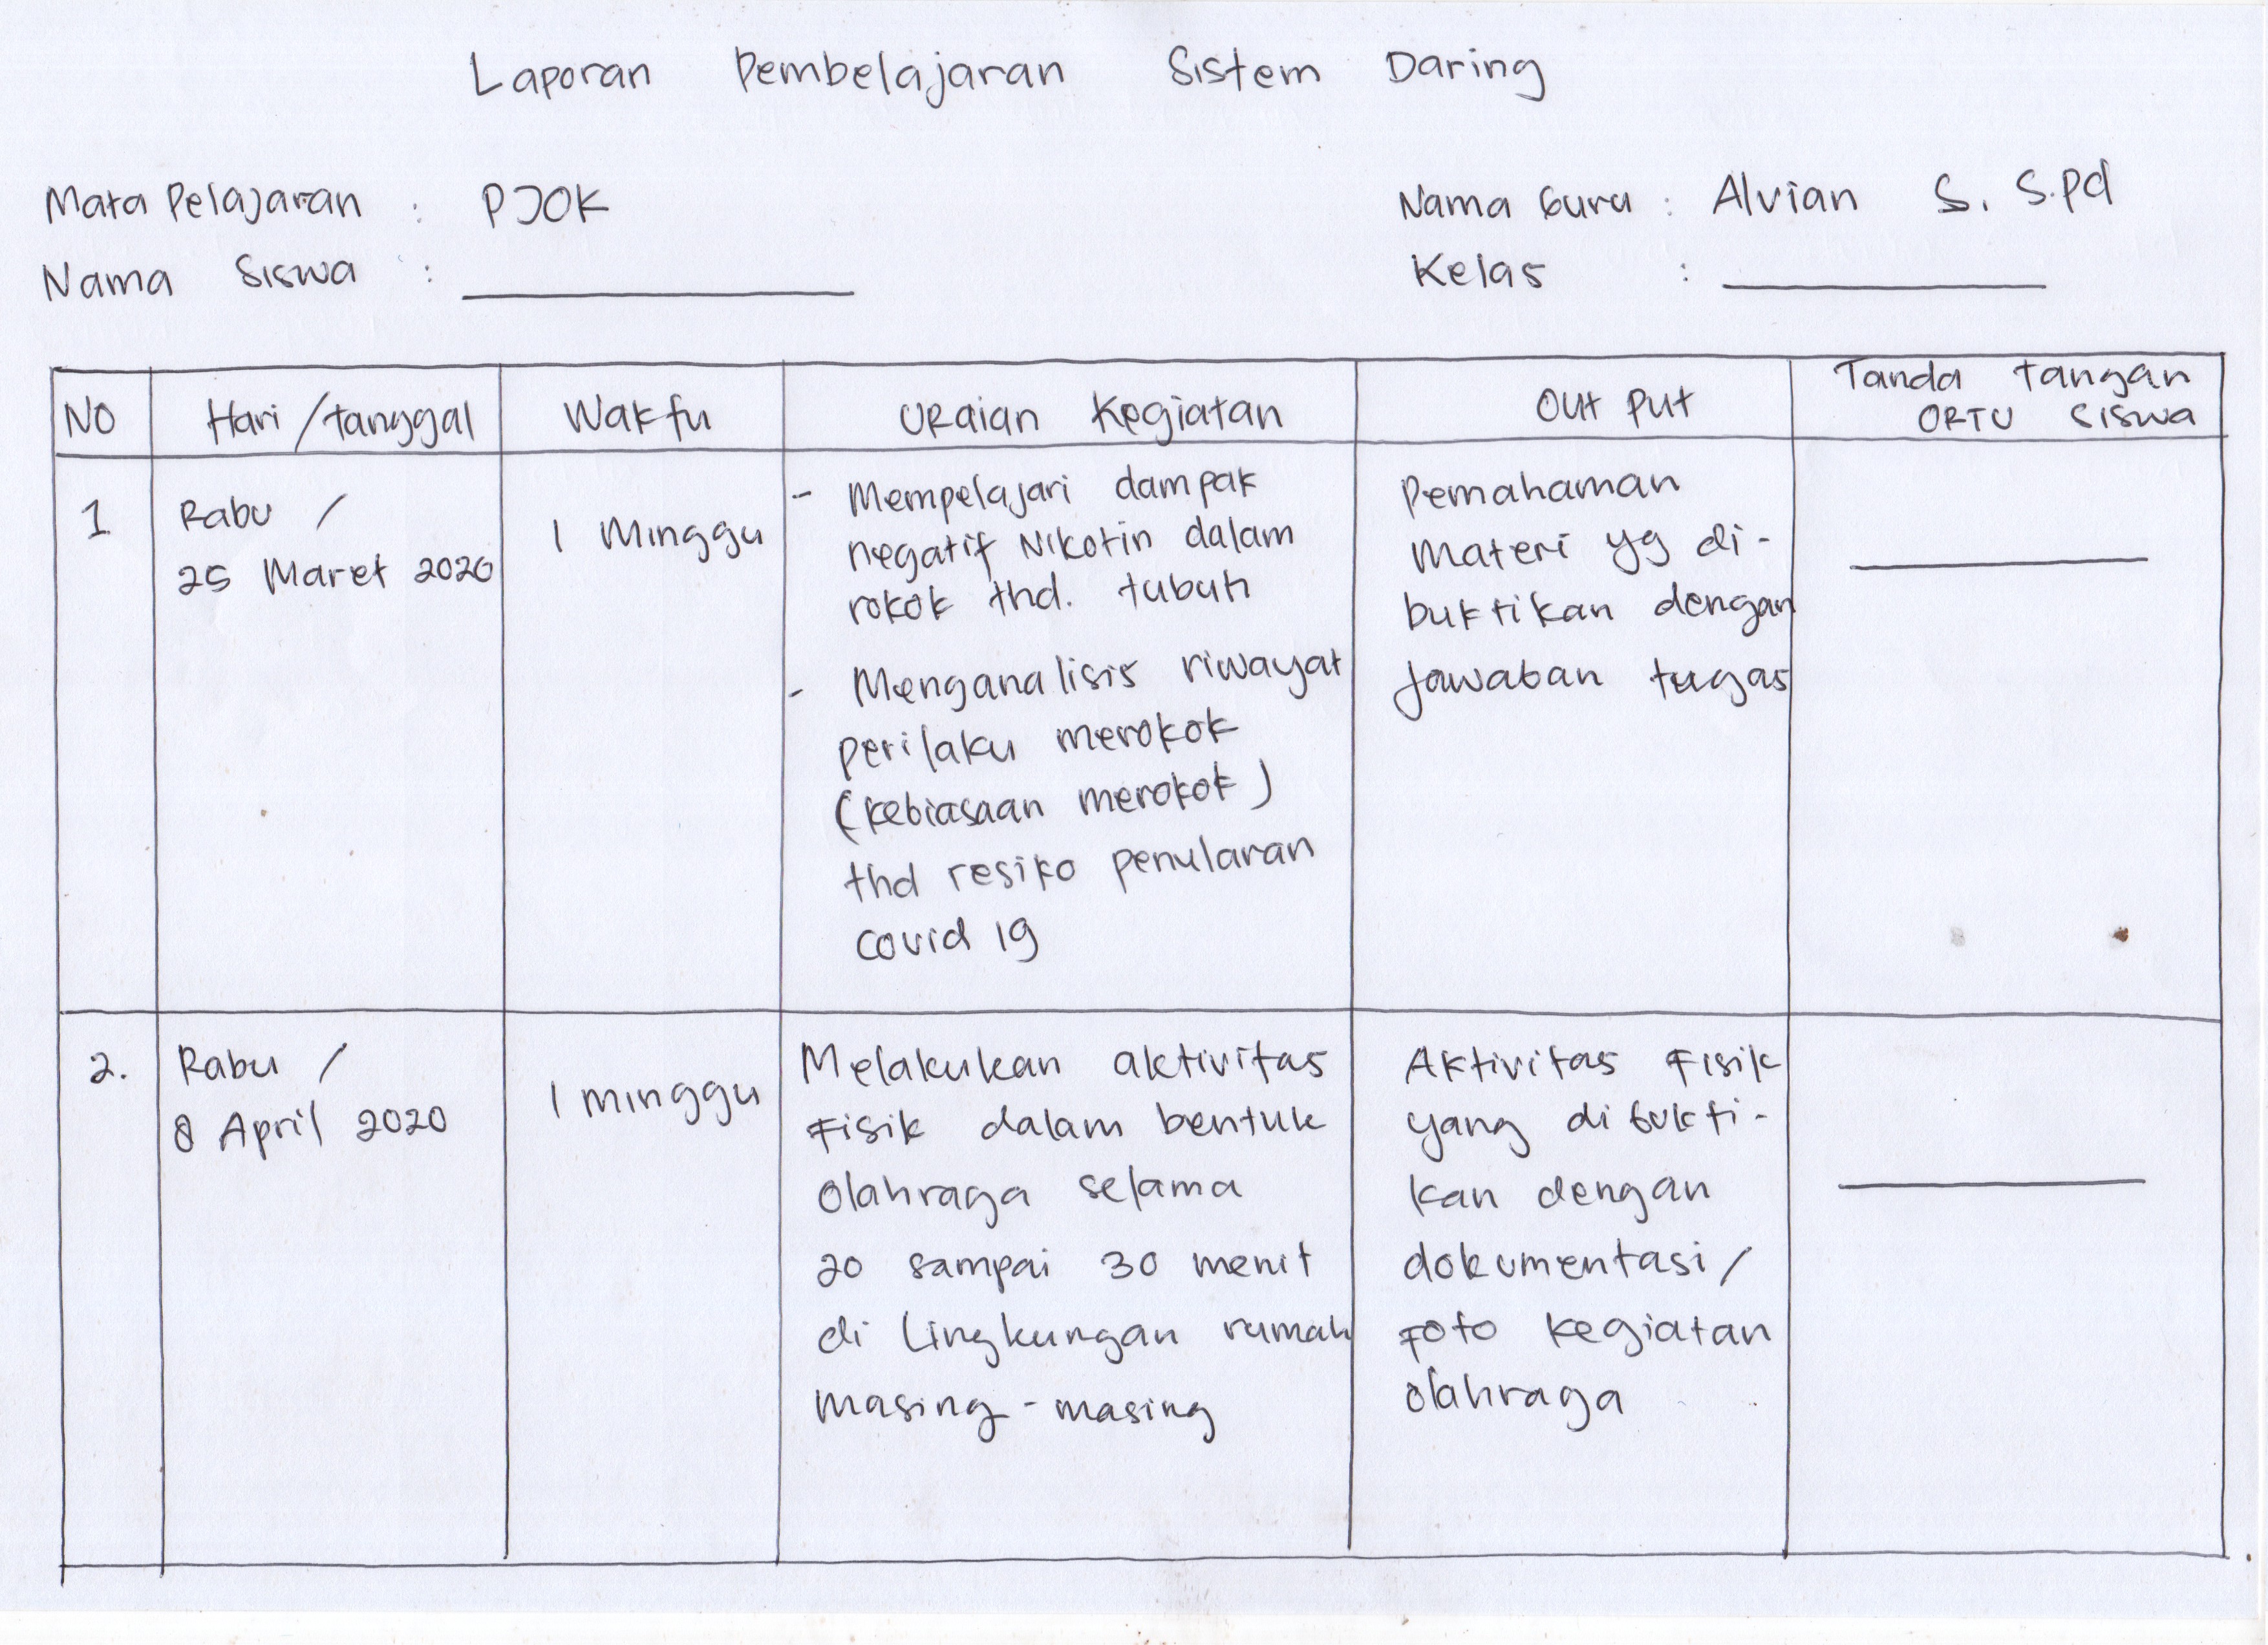 Laporan Pembelajaran Sistem Daring
Mata Pelajaran : PJOK
Nama Guru : Alvian S. S.Pd
Nama Siswa :
Kelas :
NO
Hari/tanggal
Waktu
URaian Kegiatan
Out Put
Tanda tangan
ORTU Siswa
1
Rabu /
25 Maret 2020
1 Minggu
- Mempelajari dampak
negatif Nikotin dalam
rokok thd. tubuh
- Menganalisis riwayat
perilaku merokok
(kebiasaan merokok)
thd resiko penularan
covid 19
Pemahaman
Materi yg di-
buktikan dengan
Jawaban tugas
2.
Rabu /
8 April 2020
1 minggu
Melakukan aktivitas
Fisik dalam bentuk
olahraga selama
20 sampai 30 menit
di Lingkungan rumah
masing-masing
Aktivitas Fisik
yang dibukti-
kan dengan
dokumentasi/
Foto kegiatan
olahraga